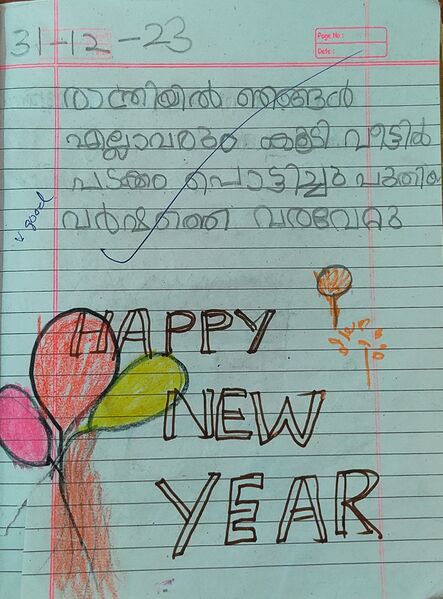 31-12-23
Page No :
Date :
രാത്രിയിൽ ഞങ്ങൾ
എല്ലാവരും കൂടി വീട്ടിൽ
പടക്കം പൊട്ടിച്ചു പുതിയ
വർഷത്തെ വരവേറ്റു
v good
HAPPY
NEW
YEAR